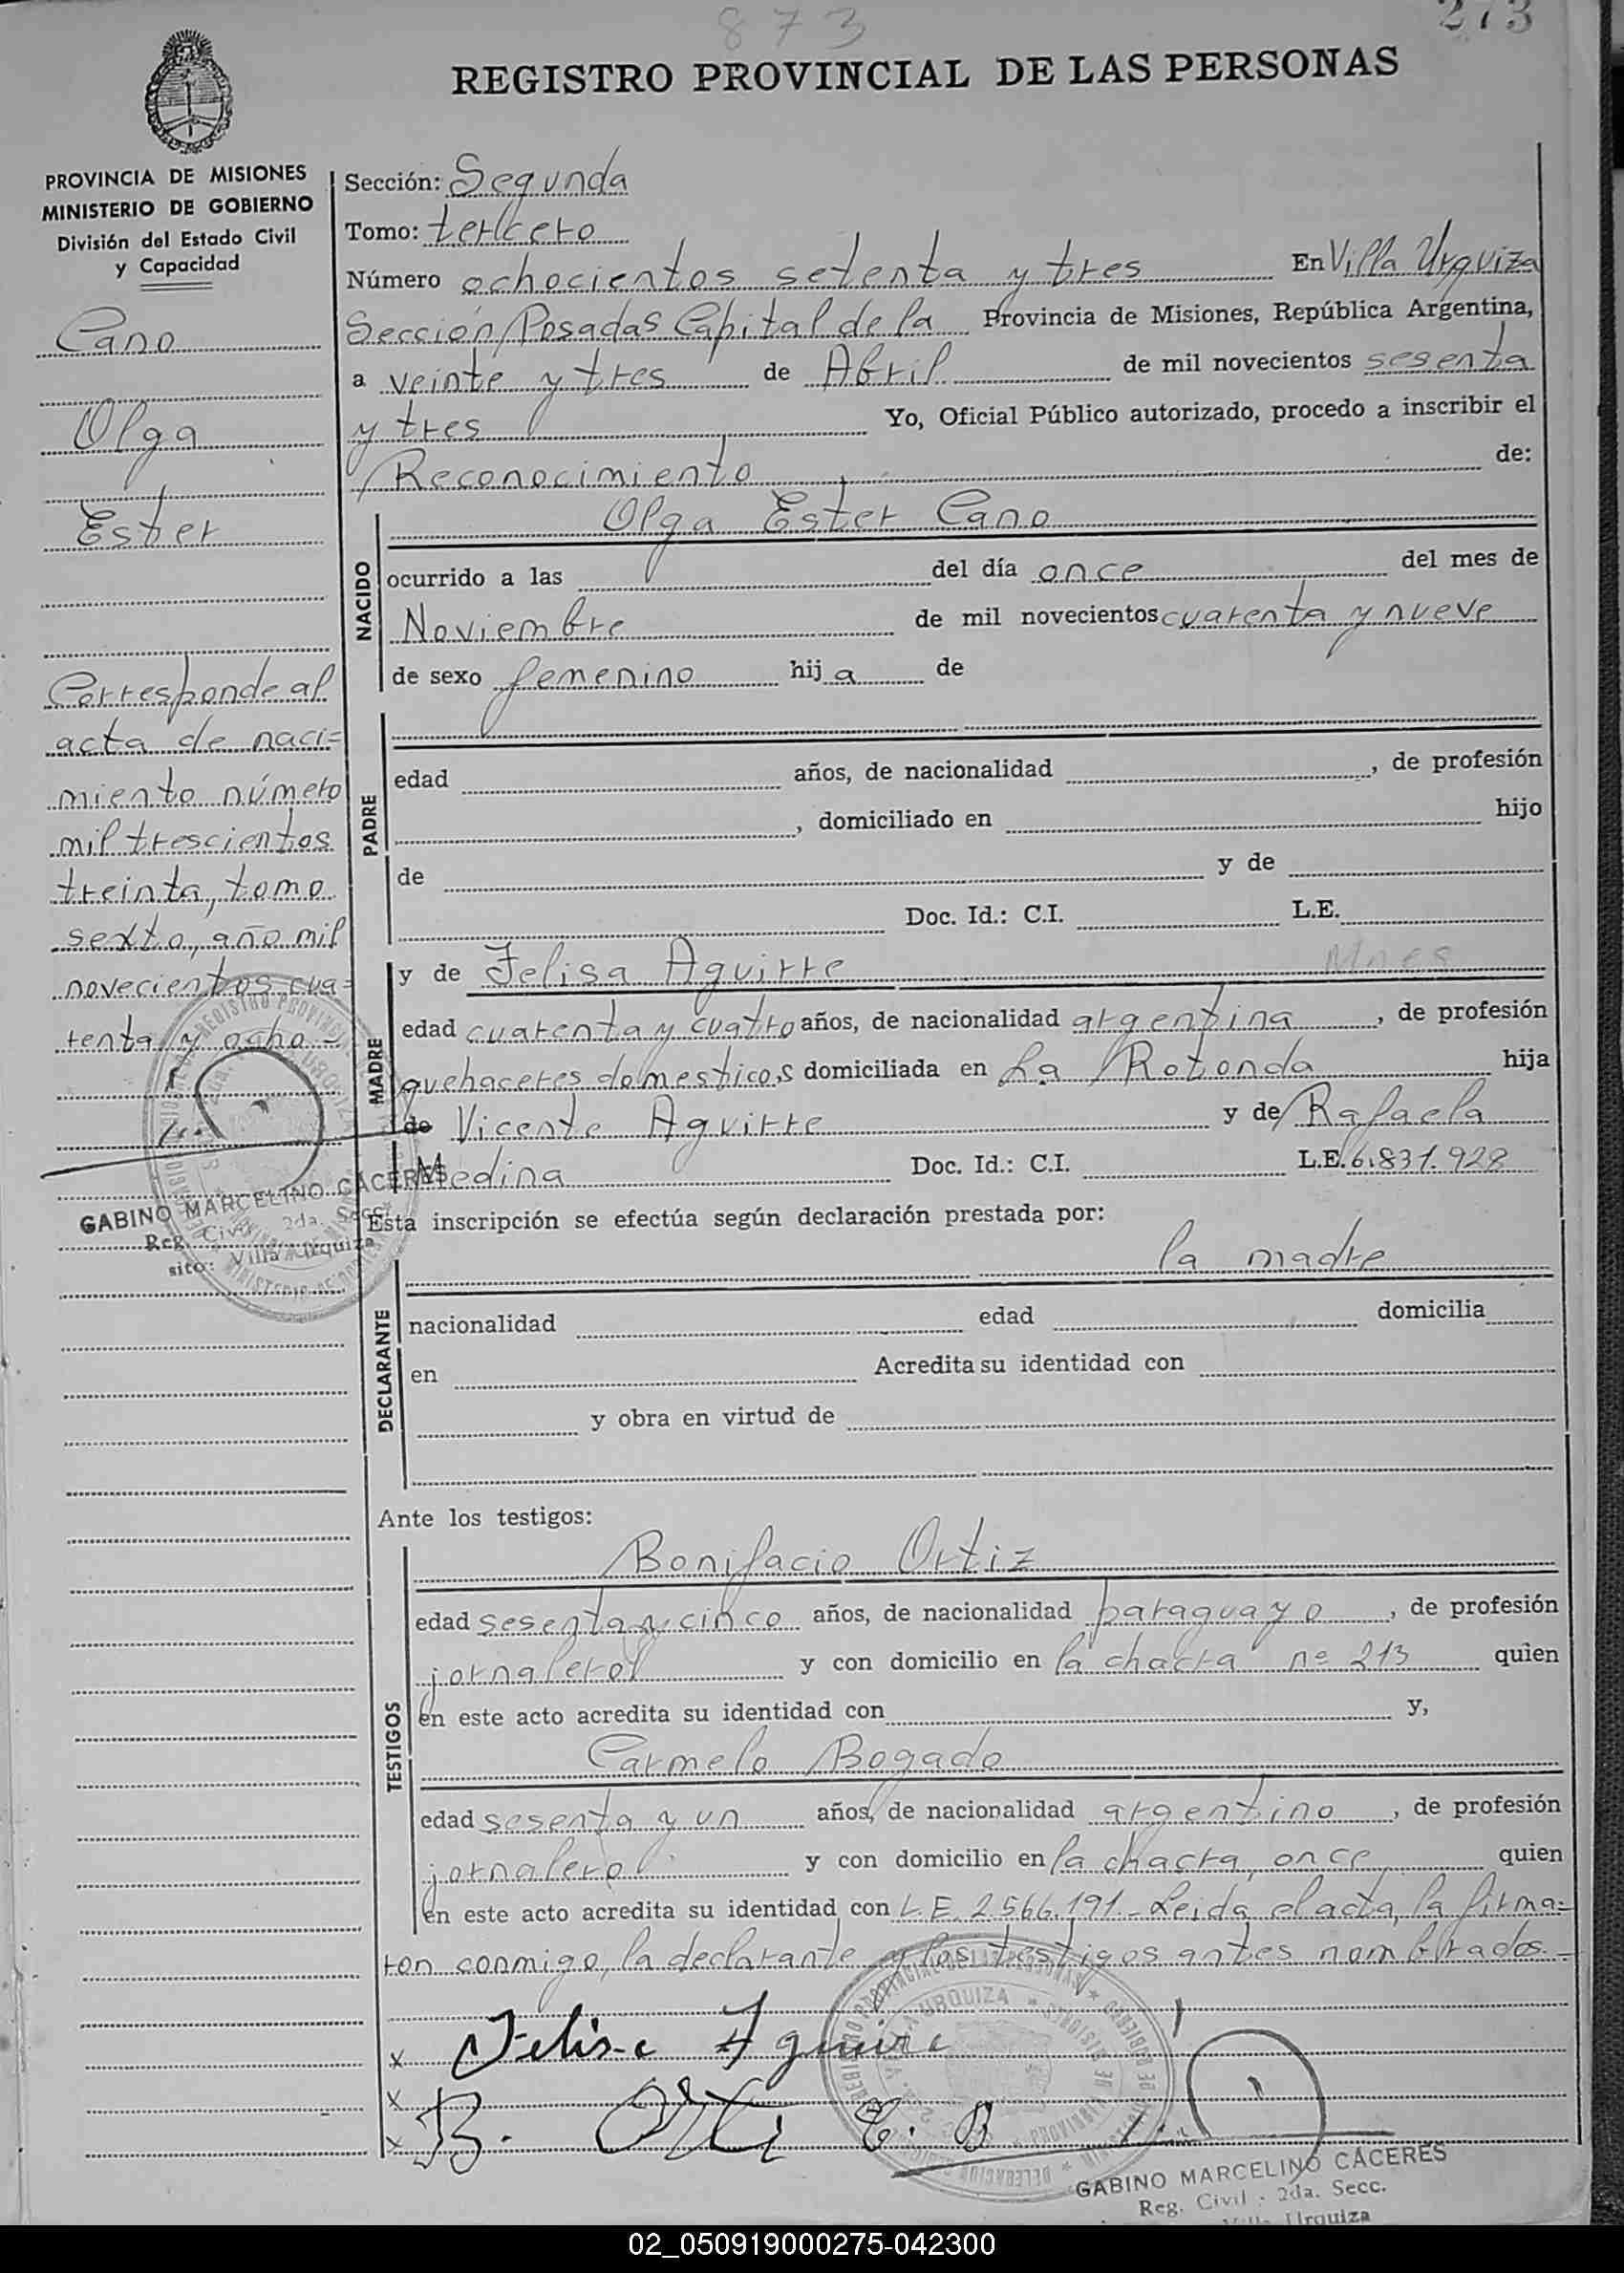 873
273
REGISTRO PROVINCIAL DE LAS PERSONAS
PROVINCIA DE MISIONES
MINISTERIO DE GOBIERNO
División del Estado Civil
y Capacidad
Cano
Olga
Ester
Corresponde al
acta de naci=
miento número
mil trescientos
treinta, tomo
sexto, año mil
novecientos cua=
renta y ocho -
GABINO MARCELINO CACERES
Reg. Civil 2da. Secc.
sito: Villa Urquiza
Sección: Segunda
Tomo: tercero
Número ochocientos setenta y tres En Villa Urquiza
Sección Posadas Capital de la Provincia de Misiones, República Argentina,
a veinte y tres de Abril de mil novecientos sesenta
y tres Yo, Oficial Público autorizado, procedo a inscribir el
Reconocimiento de:
NACIDO
Olga Ester Cano
ocurrido a las del día once del mes de
Noviembre de mil novecientos cuarenta y nueve
de sexo femenino hij a de
PADRE
edad años, de nacionalidad , de profesión
, domiciliado en hijo
de y de
Doc. Id.: C.I. L.E.
MADRE
y de Felisa Aguirre Mnes
edad cuarenta y cuatro años, de nacionalidad argentina , de profesión
quehaceres domesticos domiciliada en La Rotonda hija
de Vicente Aguirre y de Rafaela
Medina Doc. Id.: C.I. L.E. 6.831.928
Esta inscripción se efectúa según declaración prestada por:
la madre
DECLARANTE
nacionalidad edad domicilia
en Acredita su identidad con
y obra en virtud de
Ante los testigos:
TESTIGOS
Bonifacio Ortiz
edad sesenta y cinco años, de nacionalidad paraguayo , de profesión
jornalero y con domicilio en la chacra nº 213 quien
en este acto acredita su identidad con y,
Carmelo Bogado
edad sesenta y un años, de nacionalidad argentino , de profesión
jornalero y con domicilio en la chacra once quien
en este acto acredita su identidad con L.E. 2.566.191 - Leida el acta, la firma=
ron conmigo, la declarante y los testigos antes nombrados.-
x Felisa Aguirre
x
x B. Orti C. B
GABINO MARCELINO CACERES
Reg. Civil - 2da. Secc.
Villa Urquiza
02_050919000275-042300